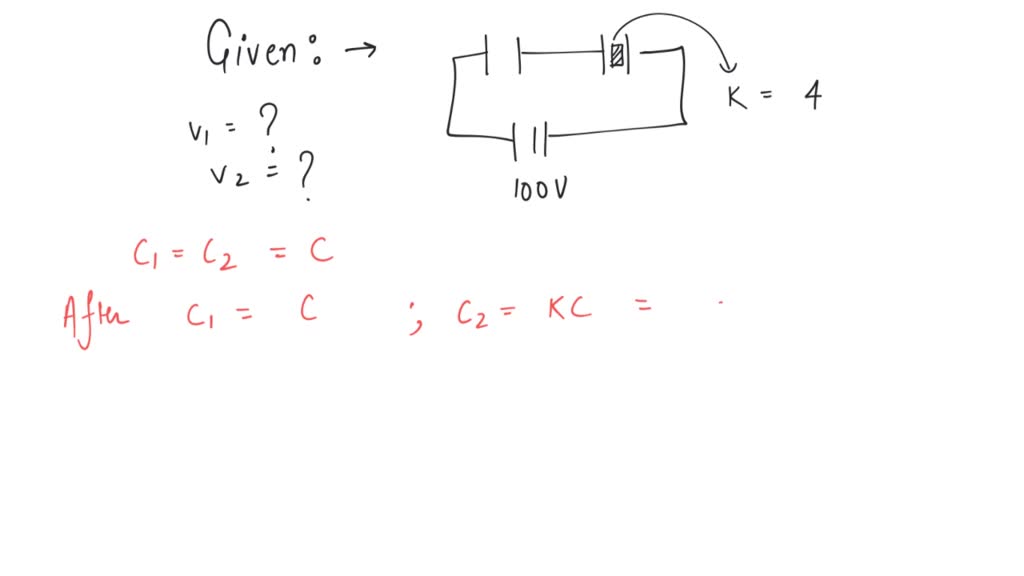 Given : →
K = 4
V1 = ?
V2 = ?
100V
C1 = C2 = C
After C1 = C ; C2 = KC =